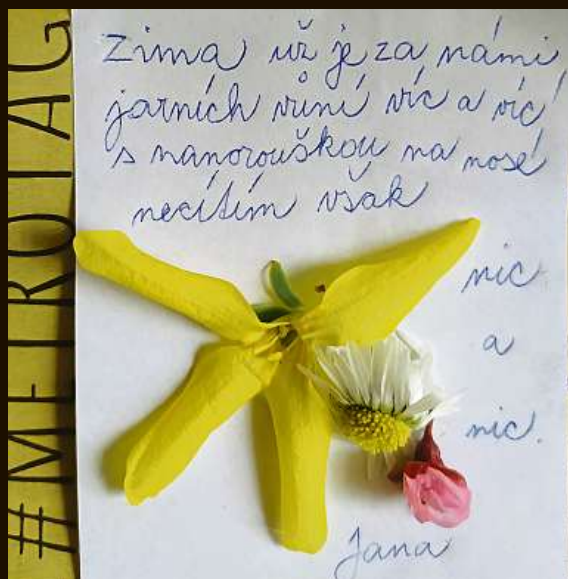 #METROTAG
Zima už je za námi
jarních vůní víc a víc
s nanorouškou na nose
necítím však
nic
a
nic.
Jana